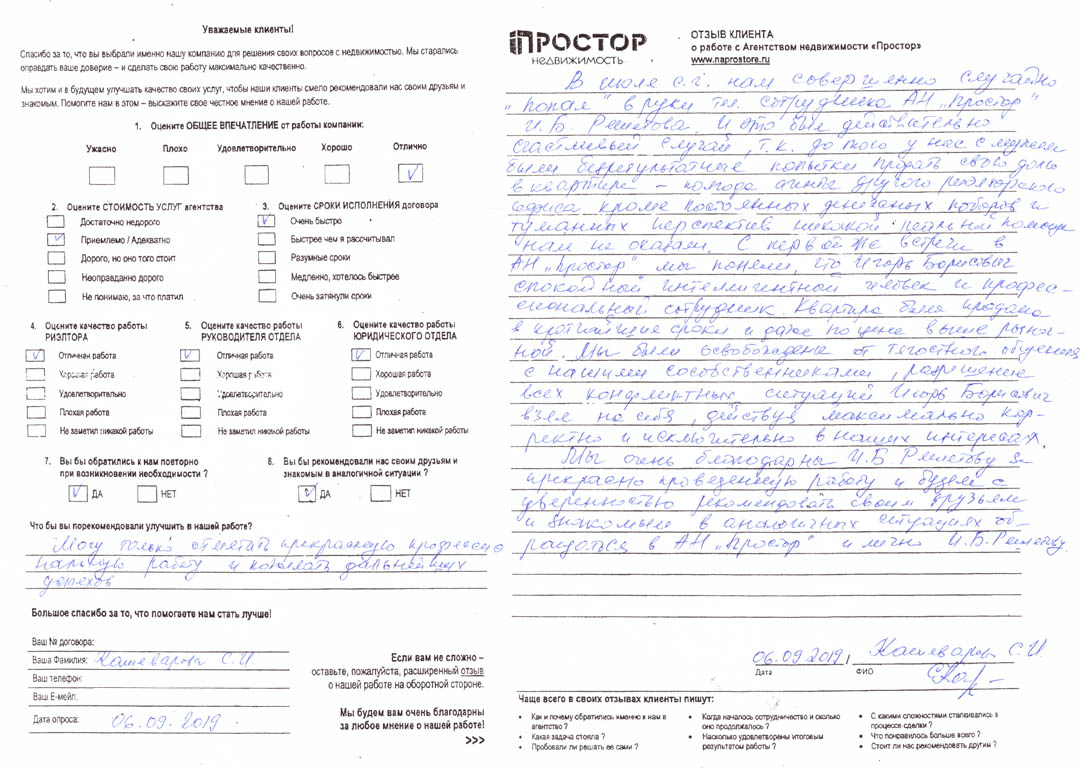 Уважаемые клиенты!
Спасибо за то, что вы выбрали именно нашу компанию для решения своих вопросов с недвижимостью. Мы старались
оправдать ваше доверие – и сделать свою работу максимально качественно.
Мы хотим и в будущем улучшать качество своих услуг, чтобы наши клиенты смело рекомендовали нас своим друзьям и
знакомым. Помогите нам в этом – выскажите свое честное мнение о нашей работе.
1. Оцените ОБЩЕЕ ВПЕЧАТЛЕНИЕ от работы компании:
Ужасно Плохо Удовлетворительно Хорошо Отлично
2. Оцените СТОИМОСТЬ УСЛУГ агентства
Достаточно недорого
Приемлемо / Адекватно
Дорого, но оно того стоит
Неоправданно дорого
Не понимаю, за что платил
3. Оцените СРОКИ ИСПОЛНЕНИЯ договора
Очень быстро
Быстрее чем я рассчитывал
Разумные сроки
Медленно, хотелось быстрее
Очень затянули сроки
4. Оцените качество работы
РИЭЛТОРА
Отличная работа
Хорошая работа
Удовлетворительно
Плохая работа
Не заметил никакой работы
5. Оцените качество работы
РУКОВОДИТЕЛЯ ОТДЕЛА
Отличная работа
Хорошая работа
Удовлетворительно
Плохая работа
Не заметил никакой работы
6. Оцените качество работы
ЮРИДИЧЕСКОГО ОТДЕЛА
Отличная работа
Хорошая работа
Удовлетворительно
Плохая работа
Не заметил никакой работы
7. Вы бы обратились к нам повторно
при возникновении необходимости ?
ДА НЕТ
8. Вы бы рекомендовали нас своим друзьям и
знакомым в аналогичной ситуации ?
ДА НЕТ
Что бы вы порекомендовали улучшить в нашей работе?
Могу только отметить прекрасную профессио
нальную работу и пожелать дальнейших
успехов
Большое спасибо за то, что помогаете нам стать лучше!
Ваш № договора:
Ваша Фамилия: Кашеварова С.И.
Ваш телефон:
Ваш E-мейл:
Дата опроса: 06.09.2019
Если вам не сложно –
оставьте, пожалуйста, расширенный отзыв
о нашей работе на оборотной стороне.
Мы будем вам очень благодарны
за любое мнение о нашей работе!
>>>
ПРОСТОР
НЕДВИЖИМОСТЬ
ОТЗЫВ КЛИЕНТА
о работе с Агентством недвижимости «Простор»
www.naprostore.ru
В июле с.г. нам совершенно случайно
„попал" в руки тел. сотрудника АН „Простор"
И.Б. Решетова, и это был действительно
счастливый случай, т.к. до того у нас с мужем
были безрезультатные попытки продать свою долю
в квартире – помощь агента другого риэлторского
офиса кроме постоянных денежных поборов и
туманных перспектив никакой реальной помощи
нам не оказали. С первой же встречи в
АН „Простор" мы поняли, что Игорь Борисович
спокойный интеллигентный человек и профес-
сиональный сотрудник. Квартира была продана
в кратчайшие сроки и даже по цене выше рыноч-
ной. Мы были освобождены от тягостного общения
с нашими сособственниками, разрешение
всех конфликтных ситуаций Игорь Борисович
взял на себя, действуя максимально кор-
ректно и исключительно в наших интересах.
Мы очень благодарны И.Б Решетову за
прекрасно проведенную работу и будем с
уверенностью рекомендовать своим друзьям
и знакомым в аналогичных ситуациях об-
ращаться в АН „Простор" и лично И.Б.Решетову.
06.09.2019 / Кашеварова С.И.
Дата ФИО
Чаще всего в своих отзывах клиенты пишут:
• Как и почему обратились именно к нам в
агентство ?
• Какая задача стояла ?
• Пробовали ли решать ее сами ?
• Когда началось сотрудничество и сколько
оно продолжалось ?
• Насколько удовлетворены итоговым
результатом работы ?
• С какими сложностями сталкивались в
процессе сделки ?
• Что понравилось больше всего ?
• Стоит ли нас рекомендовать другим ?